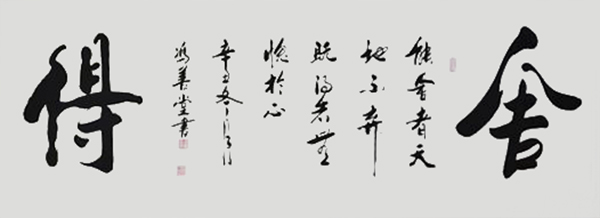 舍
能舍者天
地不弃
既得者無
愧於心
辛丑冬月
冯善堂書
得